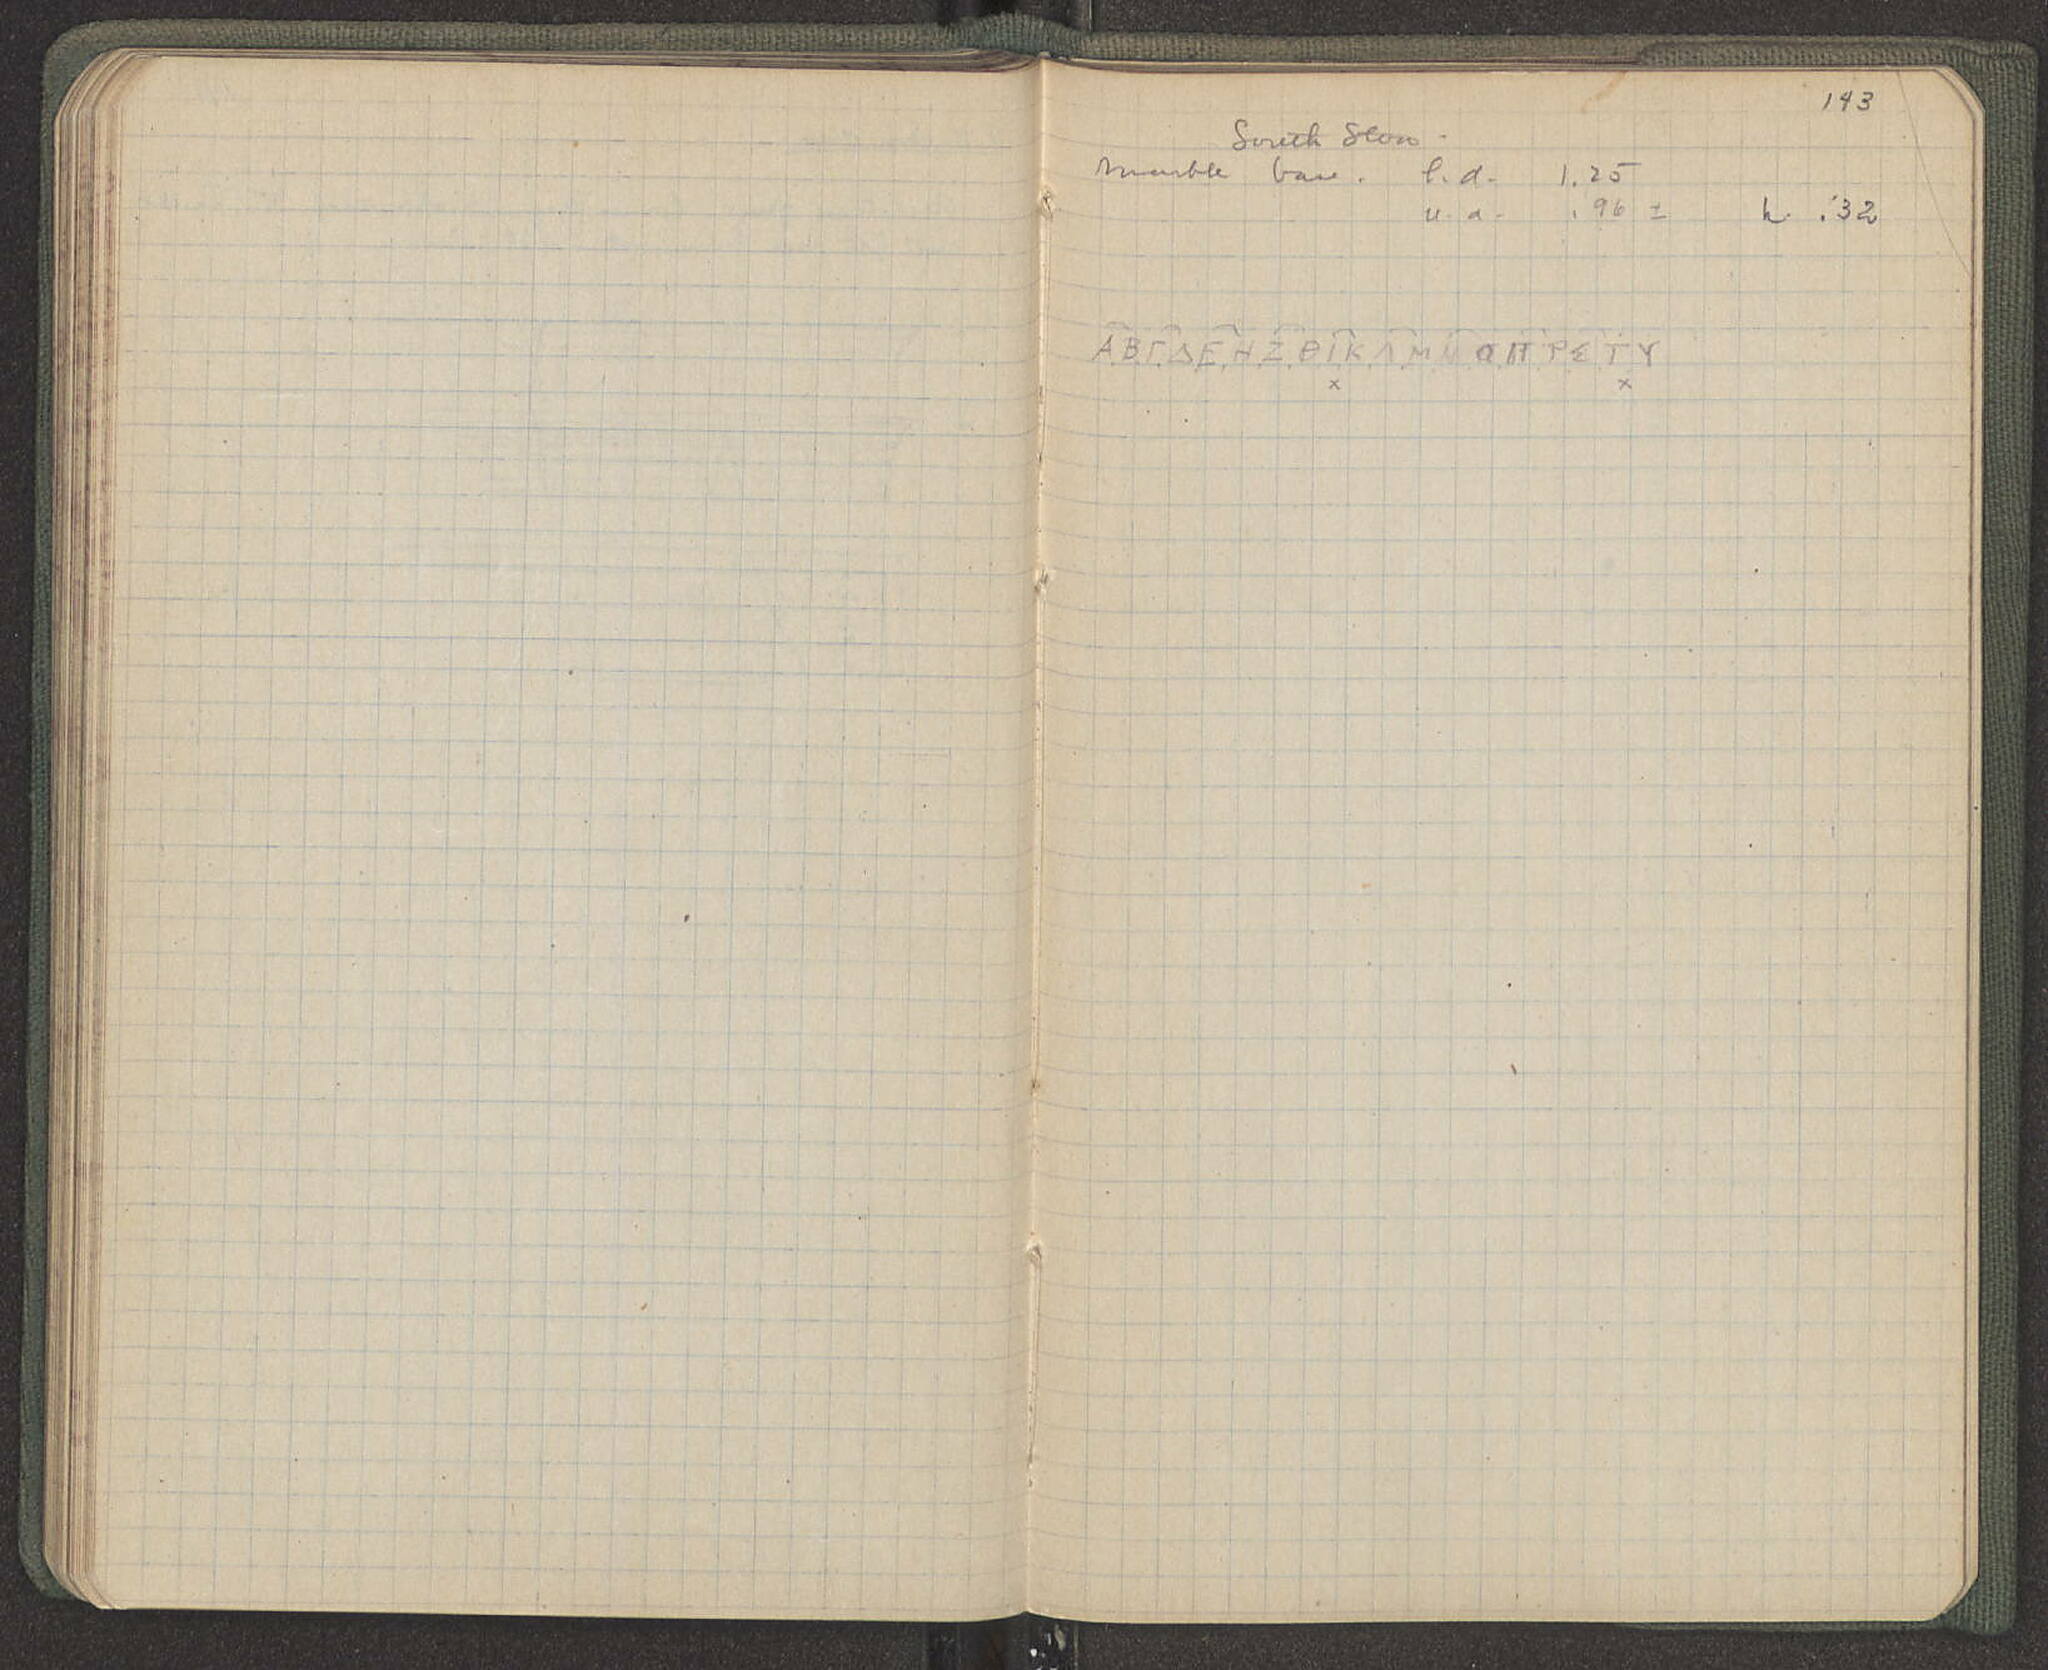 143
South Stoa.
Marble base. l.d. 1.25
u.d. .96 ± h. .32
Α Β Γ Δ Ε Η Ζ Θ Ι Κ Λ Μ Ν Ο Π Ρ Σ Τ Υ
x x